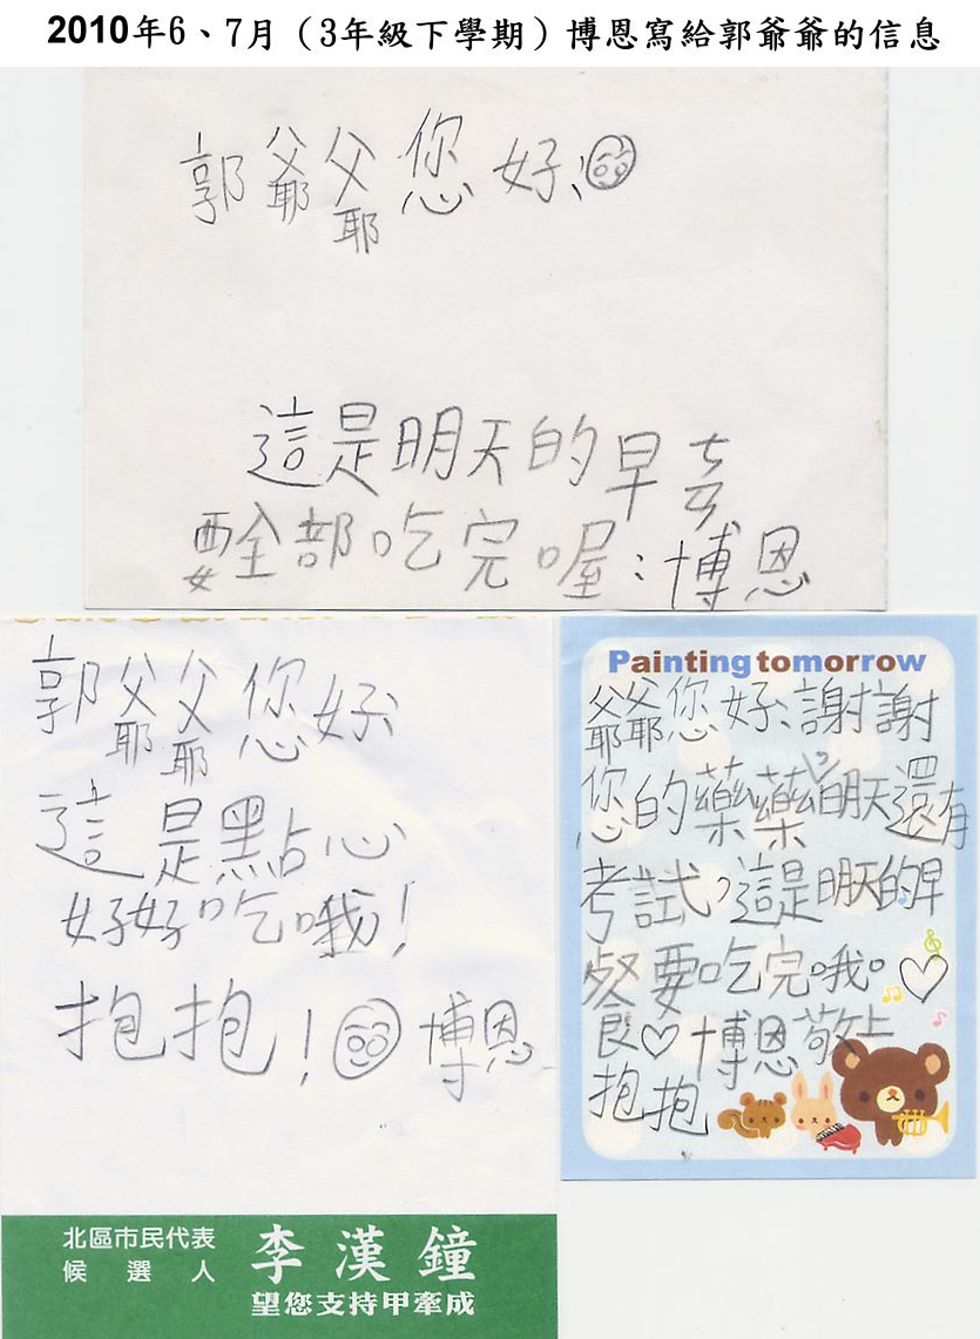 2010年6、7月（3年級下學期）博恩寫給郭爺爺的信息
郭爺爺您好
這是明天的早ㄘㄢ
要全部吃完喔:博恩
郭爺爺您好
這是點心
好好吃哦!
抱抱!博恩
Painting tomorrow
爺爺您好謝謝
您的藥藥明天還有
考試,這是明天的早
餐要吃完哦。
博恩敬上
抱抱
北區市民代表
候選人
李漢鐘
望您支持甲牽成